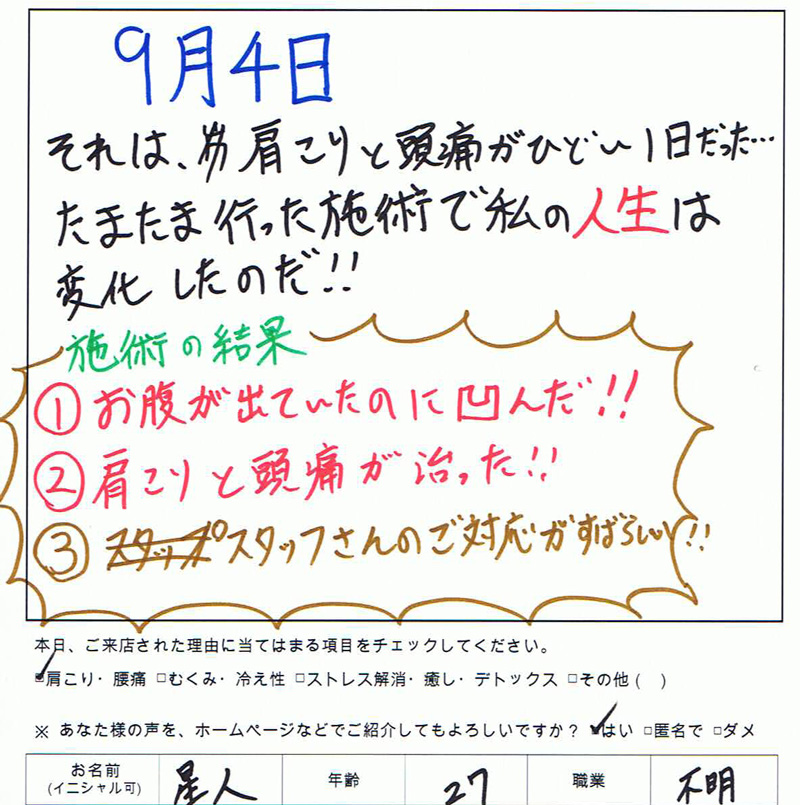 9月4日
それは、肩こりと頭痛がひどい1日だった…
たまたま行った施術で私の人生は
変化したのだ!!
施術の結果
① お腹が出ていたのに凹んだ!!
② 肩こりと頭痛が治った!!
③ スタップ スタッフさんのご対応がすばらしい!!
本日、ご来店された理由に当てはまる項目をチェックしてください。
☑肩こり・腰痛 □むくみ・冷え性 □ストレス解消・癒し・デトックス □その他( )
※ あなた様の声を、ホームページなどでご紹介してもよろしいですか? ☑はい □匿名で □ダメ
お名前 (イニシャル可) 星人 年齢 27 職業 不明